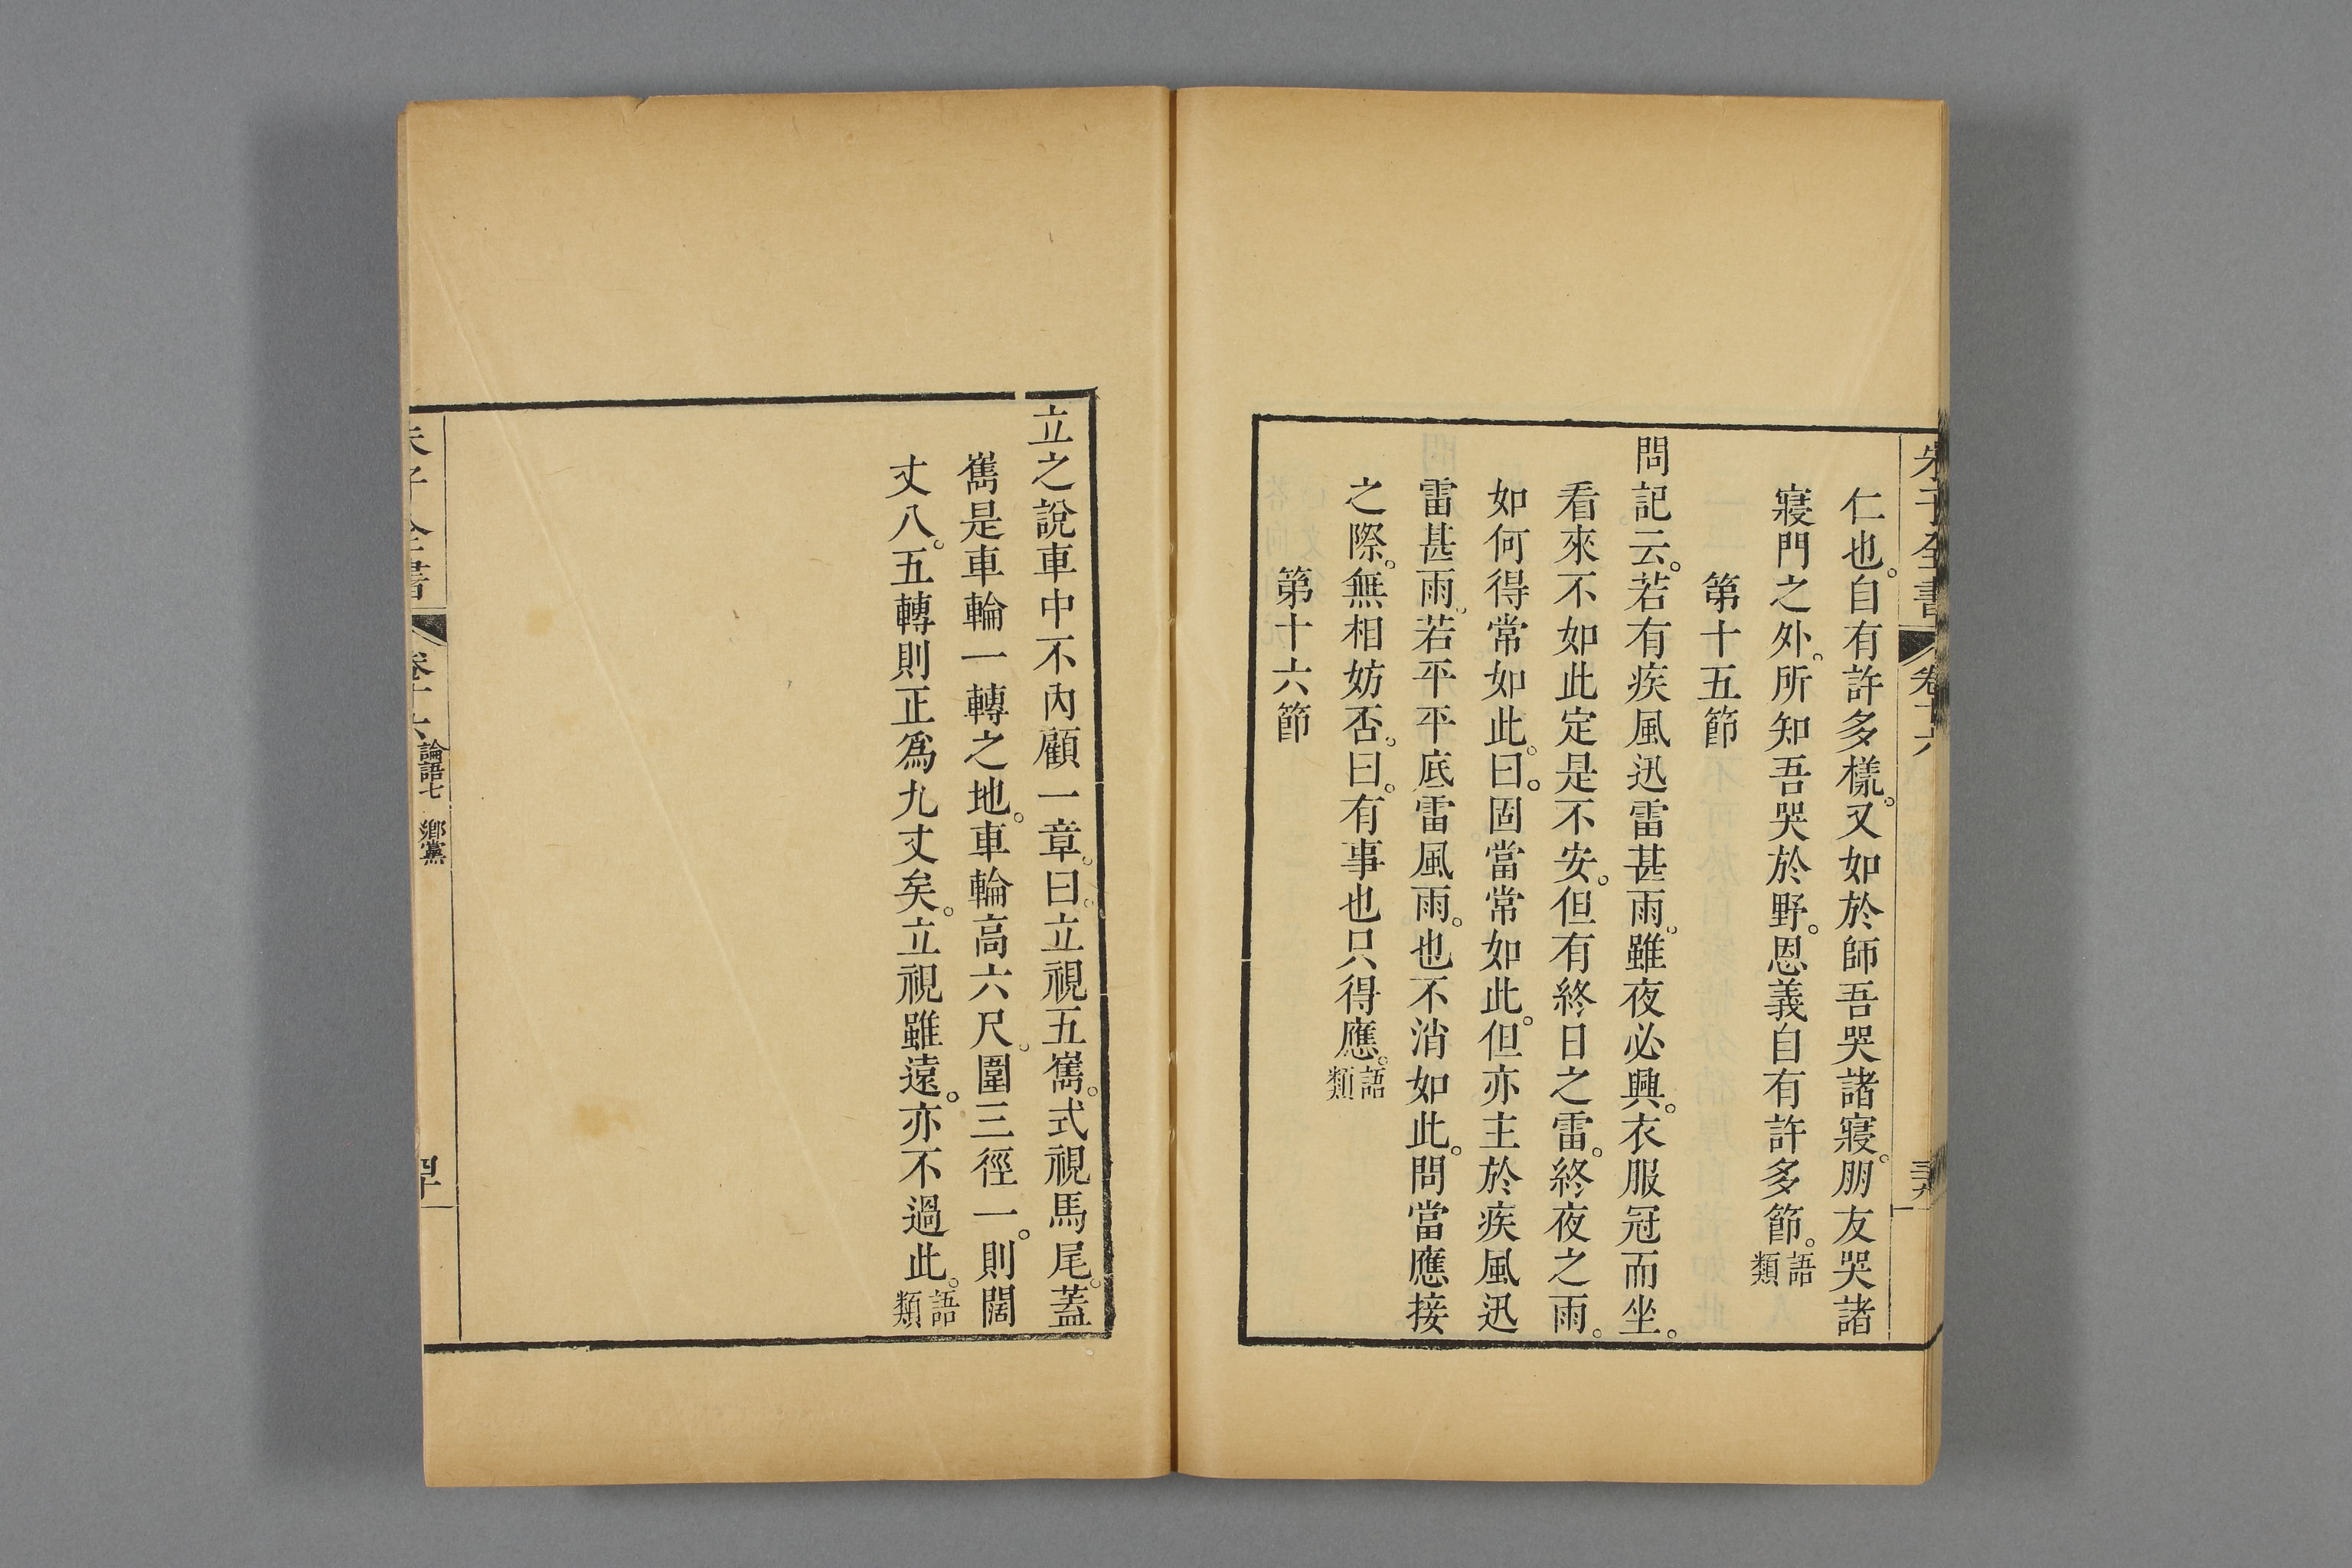 朱子全書 卷十六
仁也。自有許多樣。又如於師吾哭諸寢。朋友哭諸
寢門之外。所知吾哭於野。恩義自有許多節。語類
第十五節
問記云。若有疾風迅雷甚雨。雖夜必興。衣服冠而坐。
看來不如此定是不安。但有終日之雷。終夜之雨。
如何得常如此。曰。固當常如此。但亦主於疾風迅
雷甚雨。若平平底雷風雨。也不消如此。問當應接
之際。無相妨否。曰。有事也只得應。語類
第十六節
立之說車中不內顧一章。曰。立視五巂。式視馬尾。蓋
巂是車輪一轉之地。車輪高六尺。圍三徑一。則闊
丈八。五轉則正爲九丈矣。立視雖遠。亦不過此。語類
朱子全書 卷十六 論語七 鄉黨